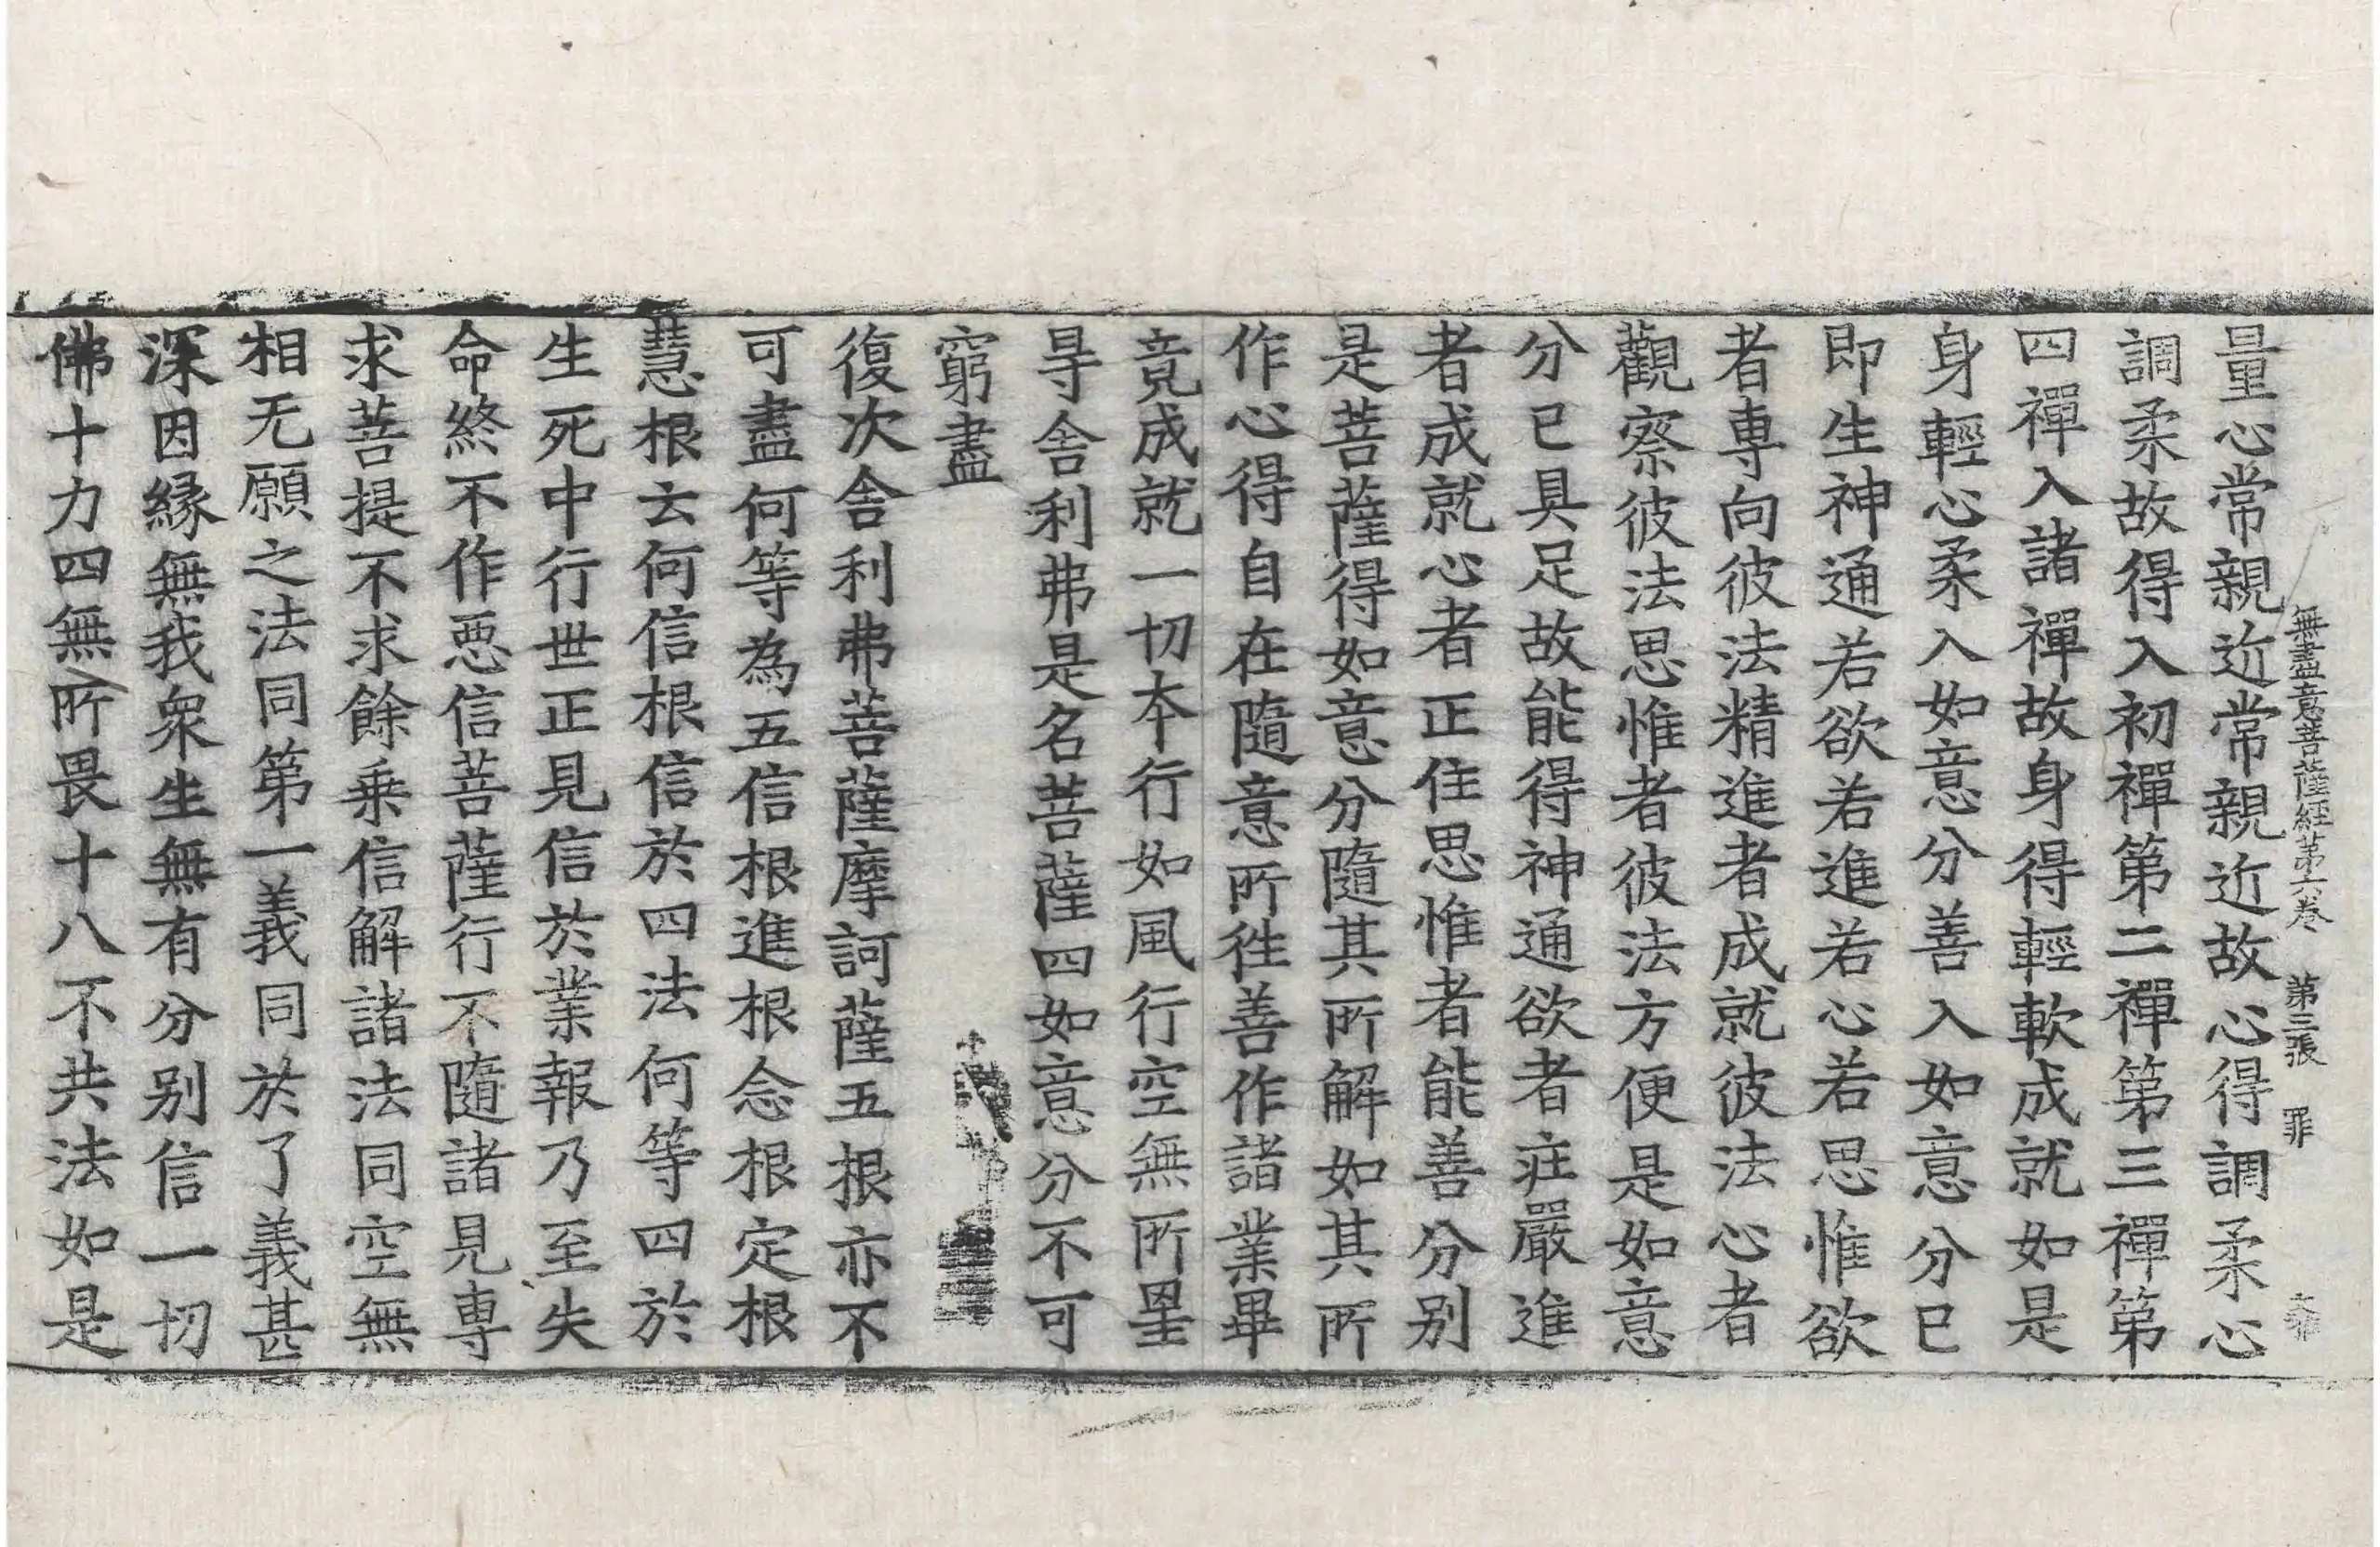 無盡意菩薩經第六卷　第三張　罪
量心常親近常親近故心得調柔心
調柔故得入初禪第二禪第三禪第
四禪入諸禪故身得輕軟成就如是
身輕心柔入如意分善入如意分已
即生神通若欲若進若心若思惟欲
者專向彼法精進者成就彼法心者
觀察彼法思惟者彼法方便是如意
分已具足故能得神通欲者莊嚴進
者成就心者正住思惟者能善分别
是菩薩得如意分隨其所解如其所
作心得自在隨意所徃善作諸業畢
竟成就一切本行如風行空無所罣
㝵舍利弗是名菩薩四如意分不可
窮盡
復次舍利弗菩薩摩訶薩五根亦不
可盡何等為五信根進根念根定根
慧根云何信根信於四法何等四於
生死中行世正見信於業報乃至失
命終不作惡信菩薩行不隨諸見專
求菩提不求餘乗信解諸法同空無
相无願之法同第一義同於了義甚
深因縁無我衆生無有分别信一切
佛十力四無所畏十八不共法如是